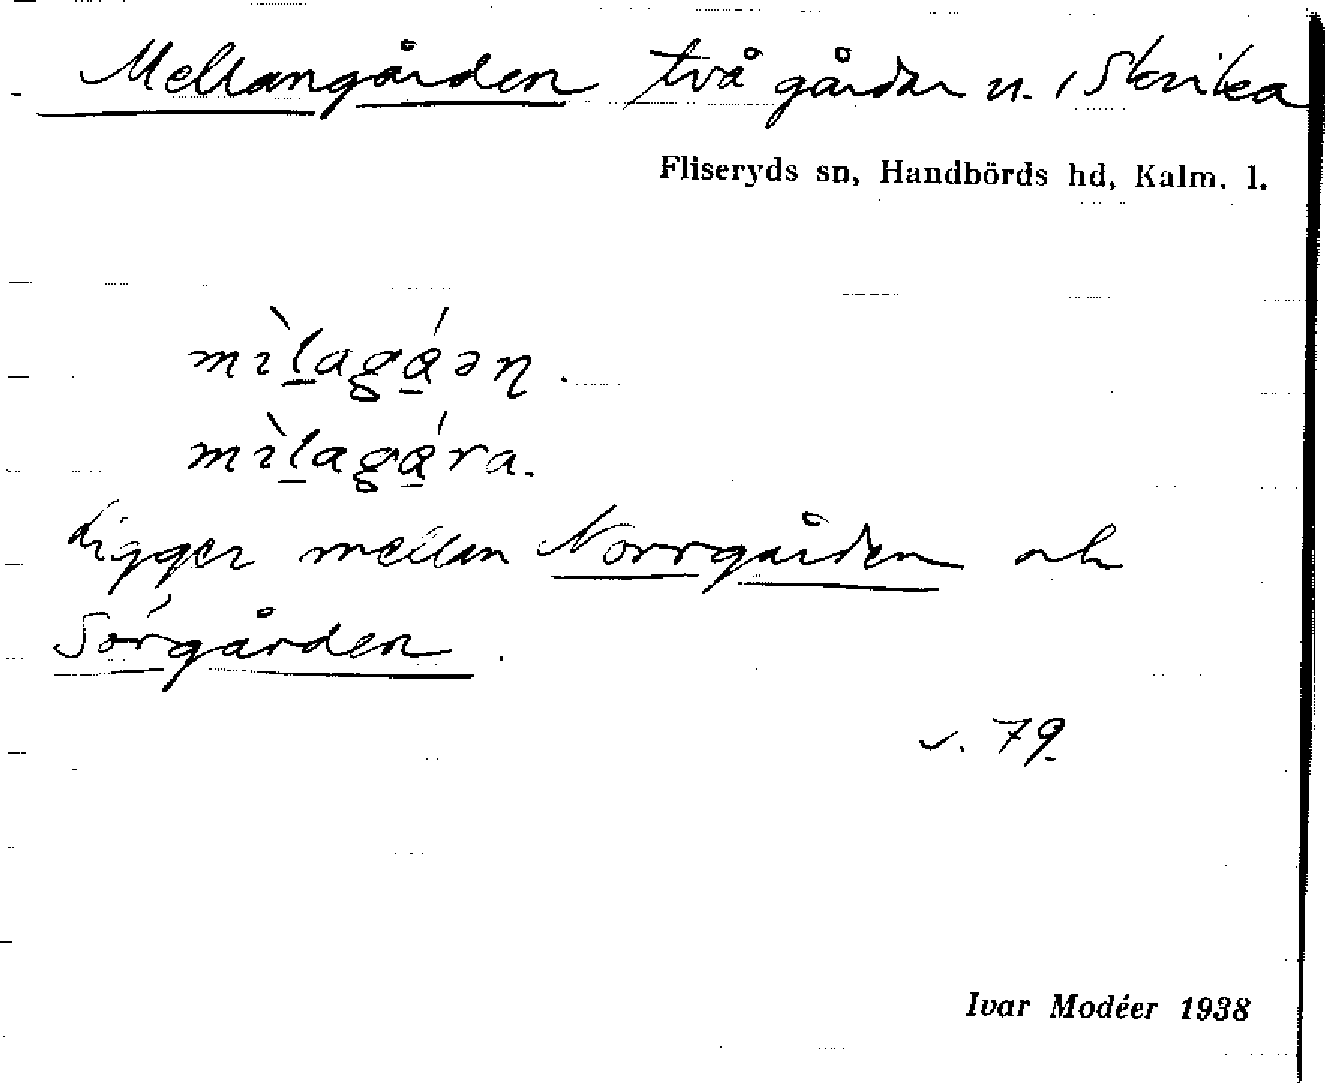 Mellangården två gårdar n. i Skrika
Fliseryds sn, Handbörds hd, Kalm. l.
mɪ̀l̠agά̠ən.
mɪ̀l̠agά̠ra.
Ligger mellan Norrgården och
Sörgården.
v. 79.
Ivar Modéer 1938